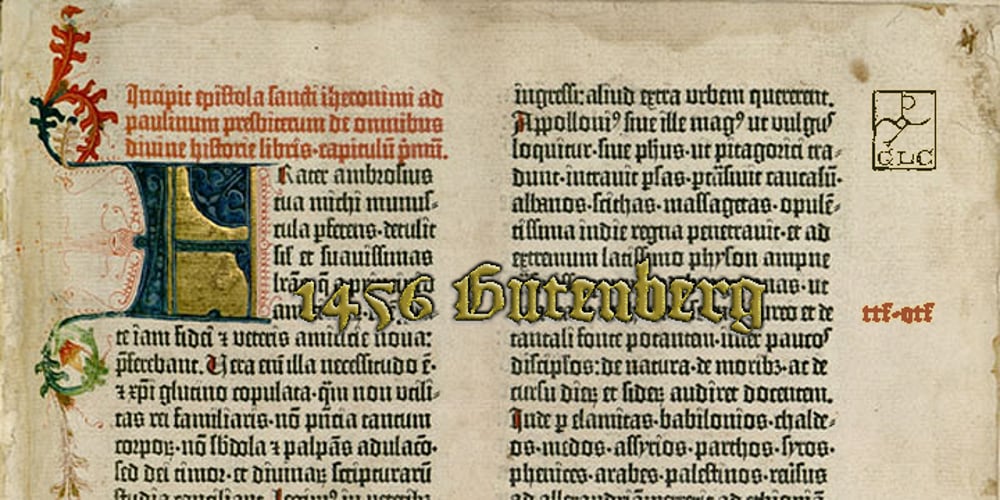 Incipit epistola sancti iheronimi ad
paulinum presbiterum de omnibus
divine historie libris·capitulū pmū.
FRater ambrosius
tua michi munus-
cula pferens·detulit
sił et suavissimas
lrās·q̄ a
te iam fidei ⁊ veteris amicicie nova:
pferebant. Vera eni illa necessitudo ē·
⁊ xpi glutino copulata·qm non utili-
tas rei familiaris·nō pñcia tantum
corpoꝝ·nō sbdola ⁊ palpās adulacō·
sed dei timor·et divinaꝝ scripturarū
studia conciliant. Legimꝰ in veteribꝫ
ingressi: aliud extra urbem quererent.
Appolloniꝰ sive ille magꝰ ut vulgus
loquitur·sive phus·ut pitagorici tra-
dunt·intravit psas·ptrāsivit caucasū·
albanos·scithas·massagetas·opulē-
tissima indie regna penetravit·et ad
extremum latissimo physon ampne
nas·ut
et de
tantali fonte potantem·inter paucos
disciplos: de natura·de moribꝫ·ac de
cursu dieꝝ et sideꝝ audiret docentem.
Inde p elamitas·babilonios·chalde-
os·medos·assyrios·parthos·syros·
phenices·arabes·palestinos·reūsus
ad alexandriā·
1456 Gutenberg
GLC
ttf-otf